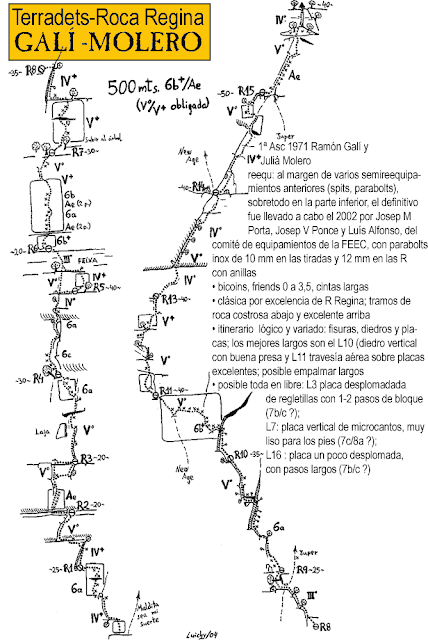 Terradets-Roca Regina
GALÍ-MOLERO
500 mts. 6b+/Ae
(Vº/V+ obligado)
-35- R8
IV+
V+
Sube al árbol
R7 -30-
V+
6b
Ae (2 p.)
6a
Ae (2 p.)
V+
6b+
-20- R6
III°
FEIXA
IV+
Vº
R5 -40-
6a
Vº
6c
-30- R4
6a
Laja
Vº
R3 -20-
Vº
Ae
R2 -20-
IV+
-25- R1
6a
IV+
Maldita
sea mi
suerte
-40-
Vº
Ae
-50- R15
Vº
Super
New
Age
IV+
R14
V+
IV+
R13 -40-
V+
Vº
R11 -40-
Vº
6b
New
Age
R10 -35-
Vº
6a
Super
R9 -25-
III°
R8
Luichy/04
– 1ª Asc 1971 Ramón Galí y
Juliá Molero
reequ: al margen de varios semireequipa-
mientos anteriores (spits, parabolts),
sobretodo en la parte inferior, el definitivo
fue llevado a cabo el 2002 por Josep M
Porta, Josep V Ponce y Luis Alfonso, del
comité de equipamientos de la FEEC, con parabolts
inox de 10 mm en las tiradas y 12 mm en las R
con anillas
• bicoins, friends 0 a 3,5, cintas largas
• clásica por excelencia de R Regina; tramos de
roca costrosa abajo y excelente arriba
• itinerario lógico y variado: fisuras, diedros y pla-
cas; los mejores largos son el L10 (diedro vertical
con buena presa y L11 travesía aérea sobre placas
excelentes; posible empalmar largos
• posible toda en libre: L3 placa desplomada
de regletillas con 1-2 pasos de bloque
(7b/c ?);
L7: placa vertical de microcantos, muy
liso para los pies (7c/8a ?);
L16 : placa un poco desplomada,
con pasos largos (7b/c ?)